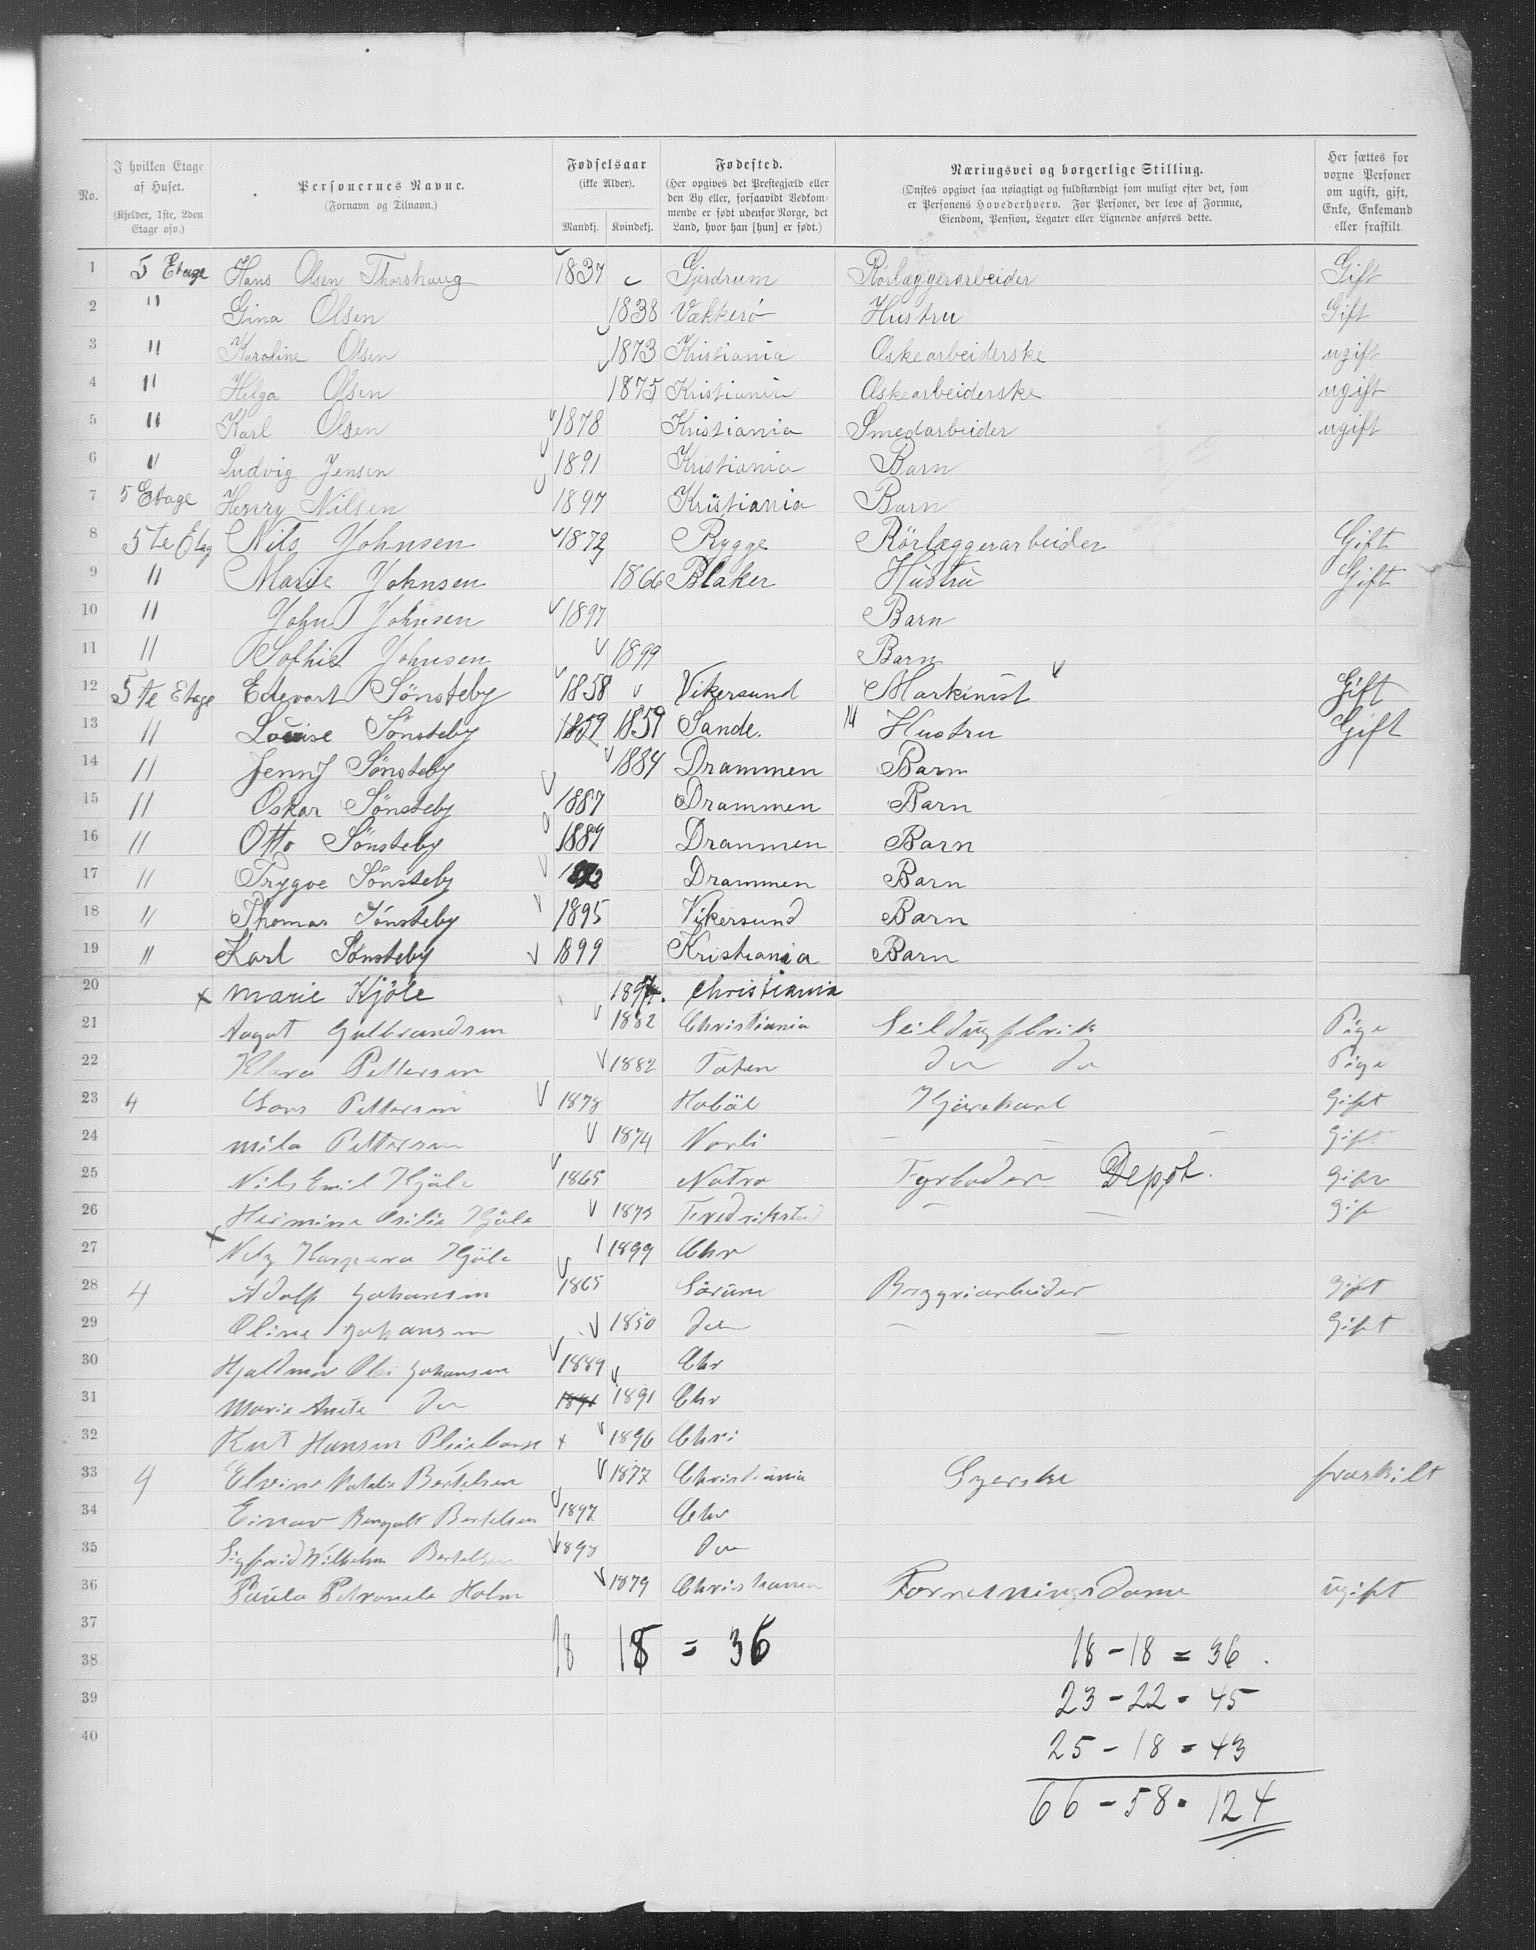 No.
I hvilken Etage af Huset.
(Kjelder, 1ste, 2den Etage osv.)
Personernes Navne.
(Fornavn og Tilnavn.)
Fødselsaar
(ikke Alder).
Mandkj. Kvindekj.
Fødested.
(Her opgives det Prestegjæld eller den By eller, forsaavidt Vedkommende er født udenfor Norge, det Land, hvor han [hun] er født.)
Næringsvei og borgerlige Stilling.
(Ønskes opgivet saa nøiagtigt og fuldstændigt som muligt efter det, som er Personens Hovederhverv. For Personer, der leve af Formue, Eiendom, Pension, Legater eller Lignende anføres dette.
Her sættes for voxne Personer om ugift, gift, Enke, Enkemand eller fraskilt.
1 5 Etage Hans Olsen Thorshaug 1837 Gjerdrum Rörlæggerarbeider Gift
2 " Gina Olsen 1838 Vækkerö Hustru Gift
3 " Karoline Olsen 1873 Kristiania Æskearbeiderske ugift
4 " Helga Olsen 1875 Kristiania Æskearbeiderske ugift
5 " Karl Olsen 1878 Kristiania Smedarbeider ugift
6 " Ludvig Jensen 1891 Kristiania Barn
7 5 Etage Henry Nilsen 1897 Kristiania Barn
8 5te Etag Nils Johnsen 1872 Rygge Rörlæggerarbeider Gift
9 " Marie Johnsen 1866 Blaker Hustru Gift
10 " John Johnsen 1897 Barn
11 " Sofhie Johnsen 1899 Barn
12 5te Etage Edevart Sönsteby 1858 Vikersund Markinist Gift
13 " Louise Sönsteby 1859 1859 Sande. Hustru Gift
14 " Jenny Sönsteby 1884 Drammen Barn
15 " Oskar Sönsteby 1887 Drammen Barn
16 " Otto Sönsteby 1889 Drammen Barn
17 " Trygve Sönsteby Drammen Barn
18 " Thomas Sönsteby 1895 Vikersund Barn
19 " Karl Sönsteby 1899 Kristiania Barn
20 x Marie Kjöle Christiania
21 Aagot Gulbrandsen 1882 Christiania Pige
22 Klara Pettersen 1882 Toten do do Pige
23 4 Pettersen 1878 Hoböl Kjörekarl Gift
24 Mila Pettersen 1874 — — — Gift
25 Nils Emil Kjöle 1865 Fyrböder Depot. Gift
26 Hermine Kjöle 1873 Fredrikstad — — Gift
27 x Kjöle 1899 Chr
28 4 Adolf Johansen 1865 Sörum Bryggeriarbeider Gift
29 Oline Johansen 1850 do — — Gift
30 Hjaldmar Johansen 1889 Chr
31 Marie Anete do 1891 1891 Chr
32 Hansen x 1896 Chri
33 4 Elvine Natalie Bertelsen 1877 Christiania Syerske fraskilt
34 Einar Bertelsen 1897 Chr
35 Sigfrid Wilhelm Bertelsen 1898 do
36 Paula Petronele Holm 1879 Christiania Forretningsdame ugift
37
38
39
40
18 18 = 36
18 - 18 = 36.
23 - 22 = 45
25 - 18 = 43
66 - 58 = 124